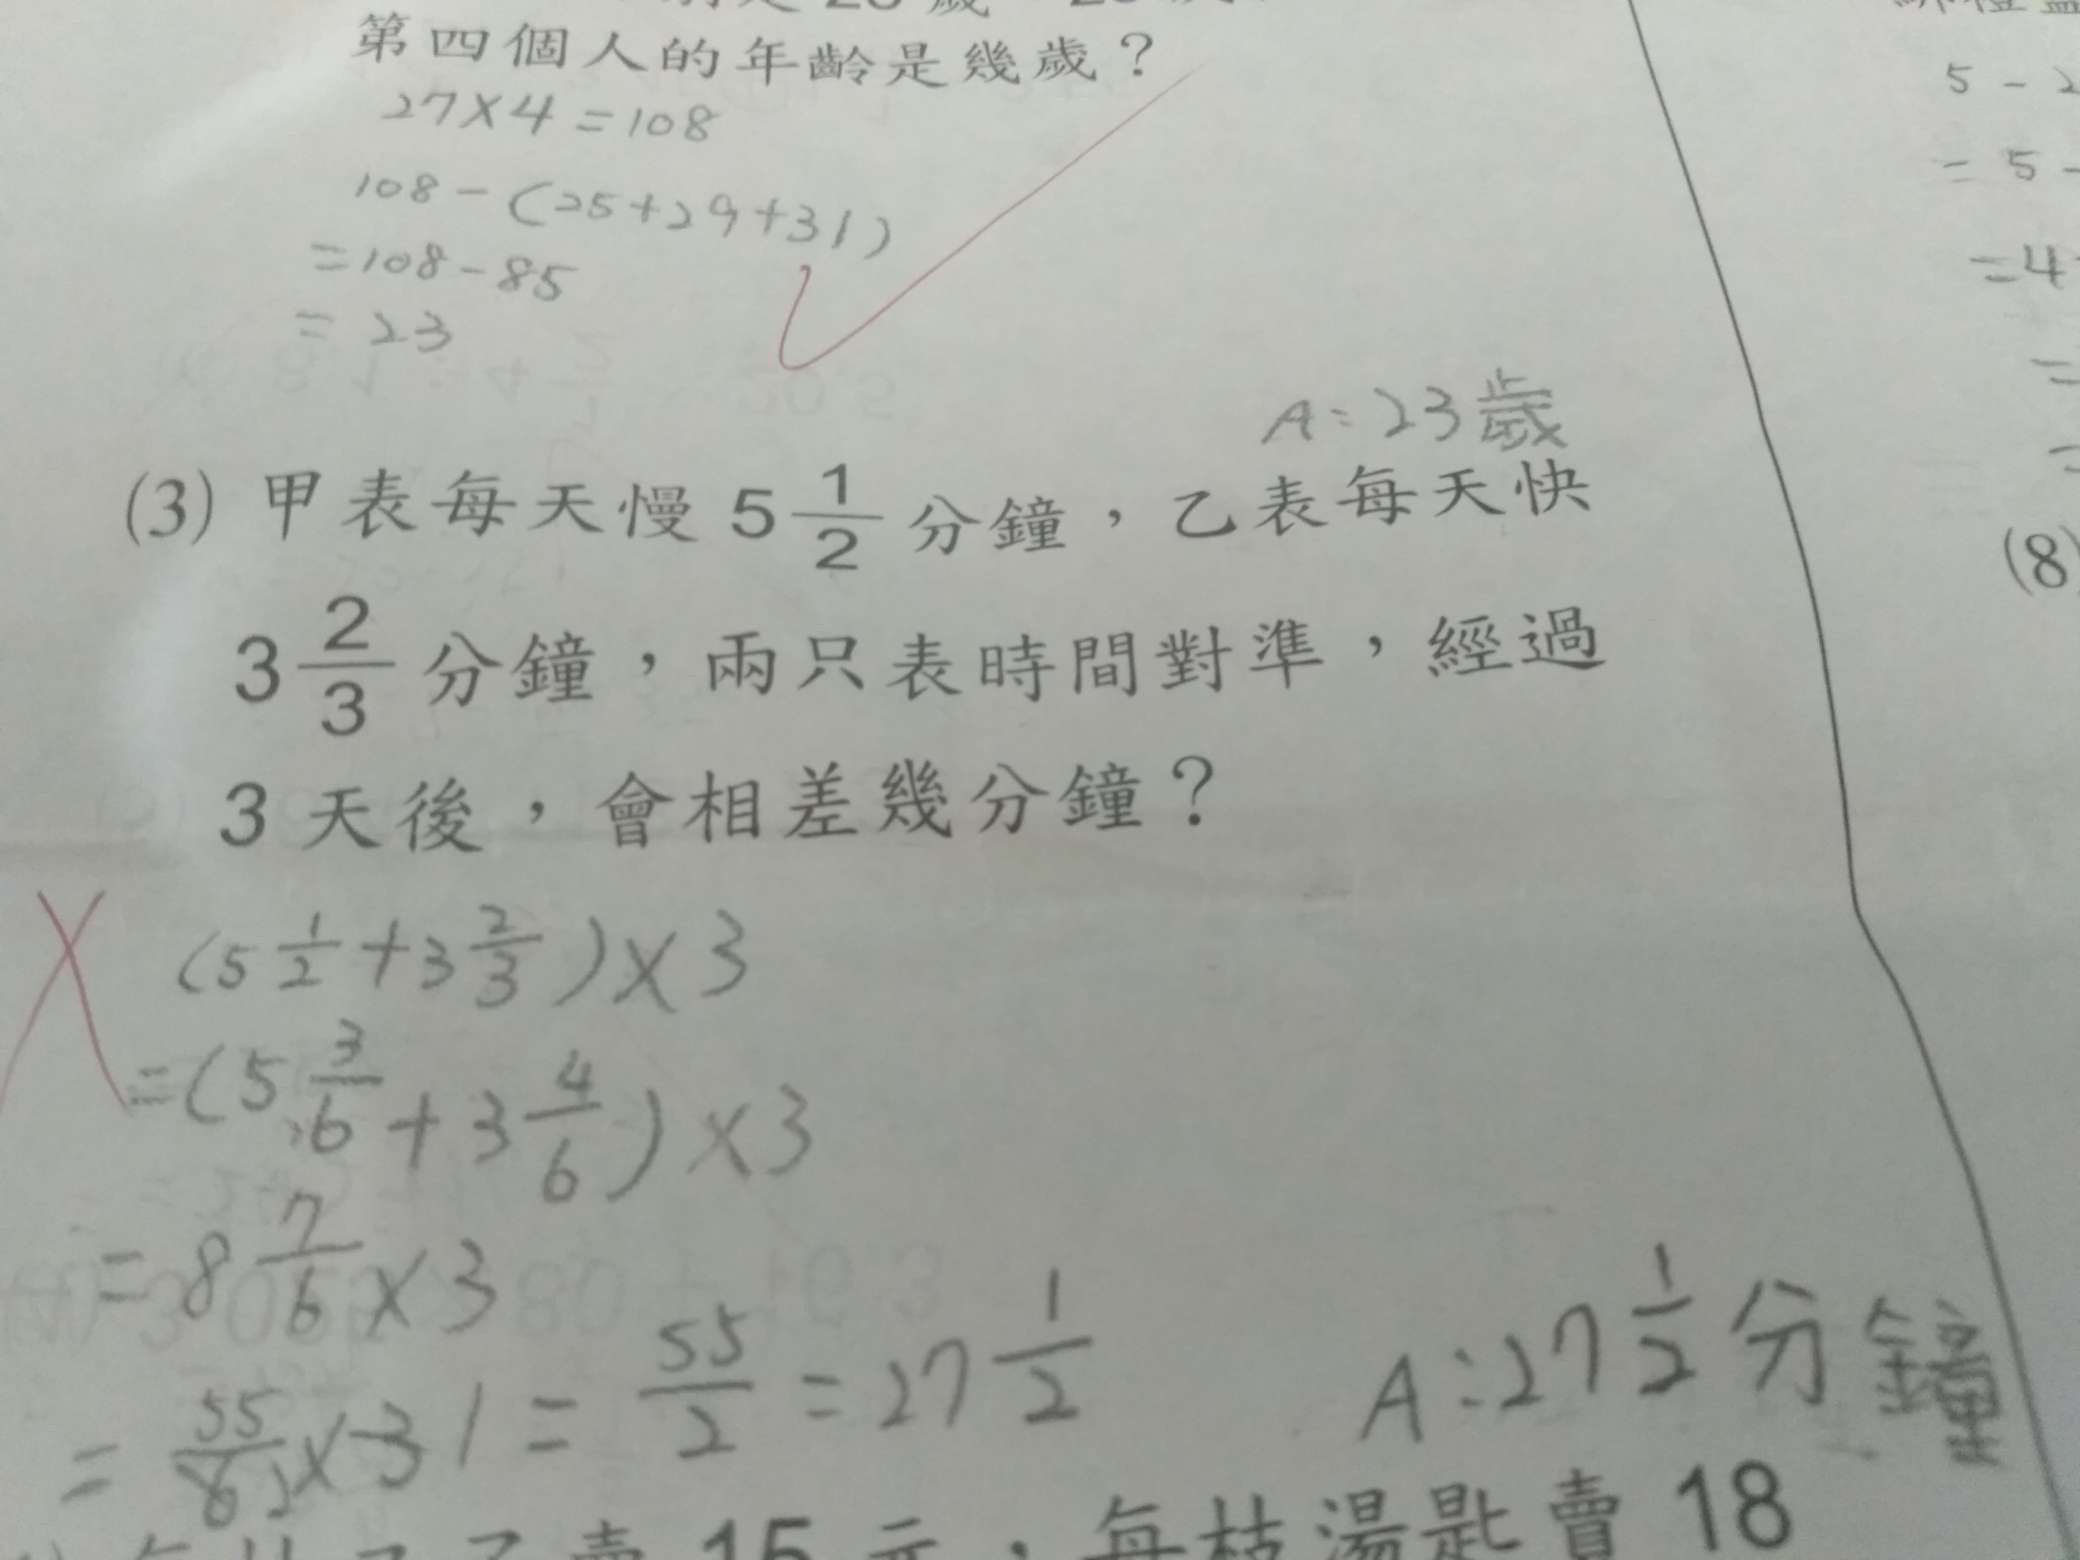 第四個人的年齡是幾歲？
27×4=108
108-(25+29+31)
=108-85
=23
A:23歲
(3) 甲表每天慢 5 1/2 分鐘，乙表每天快
3 2/3 分鐘，兩只表時間對準，經過
3 天後，會相差幾分鐘？
(5 1/2 + 3 2/3)×3
=(5 3/6 + 3 4/6)×3
=8 7/6 ×3
=55/6 2 ×3 1 = 55/2 = 27 1/2
A:27 1/2 分鐘
賣 15 元，每枝湯匙賣 18
5-2
=5-
=4
=
=
(8)